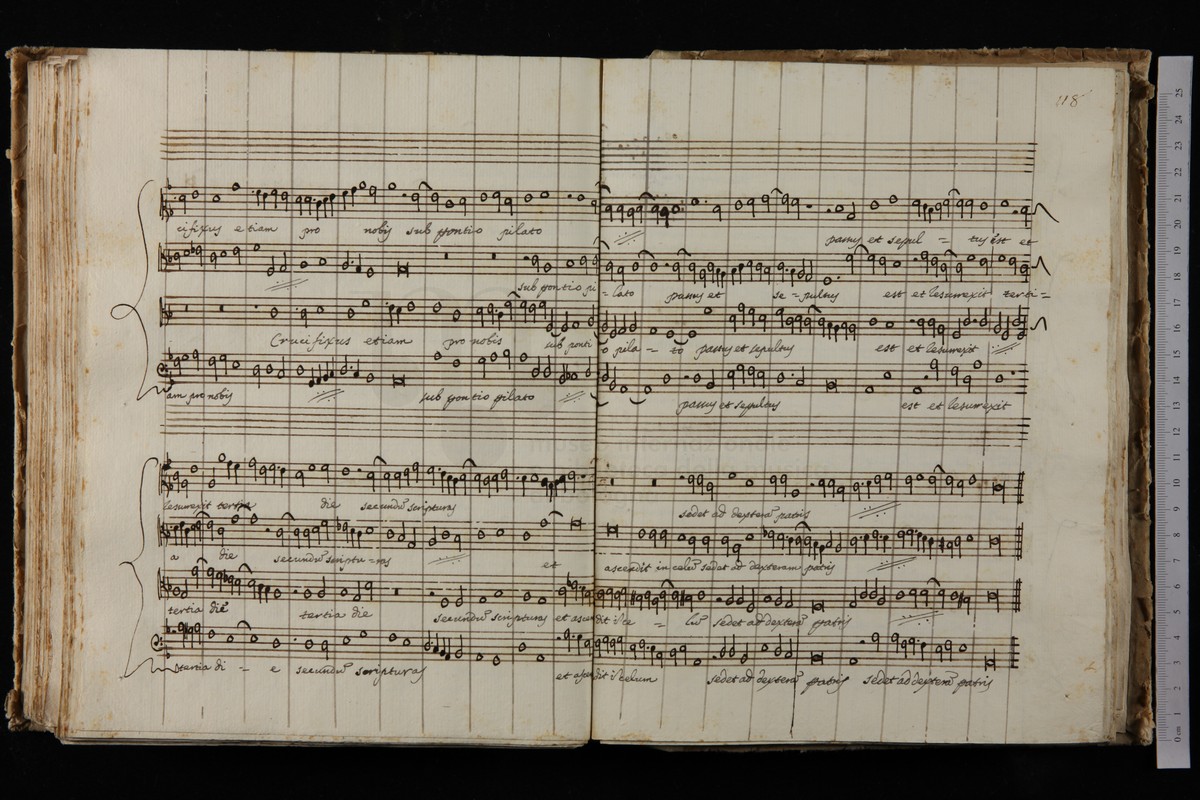 118
cifixus etiam pro nobis sub pontio pilato passus et sepul = tus est et
sub pontio pi = lato passus et se = pultus est et resurrexit terti =
Crucifixus etiam pro nobis sub ponti o pila = to passus et sepultus est et resurrexit
am pro nobis sub pontio pilato passus et sepultus est et resurrexit
resurexit tertia die secundũ scripturas sedet ad dexterã patris
a die secundũ scriptu = ras et ascendit in celũ sedet ad dexteram patris
tertia die tertia die secundũ scripturas et ascen dit ĩ ce = lũ sedet ad dexterã patris
tertia di = e secundũ scripturas et ascen dit ĩ celum sedet ad dexterã patris sedet ad dexterã patris